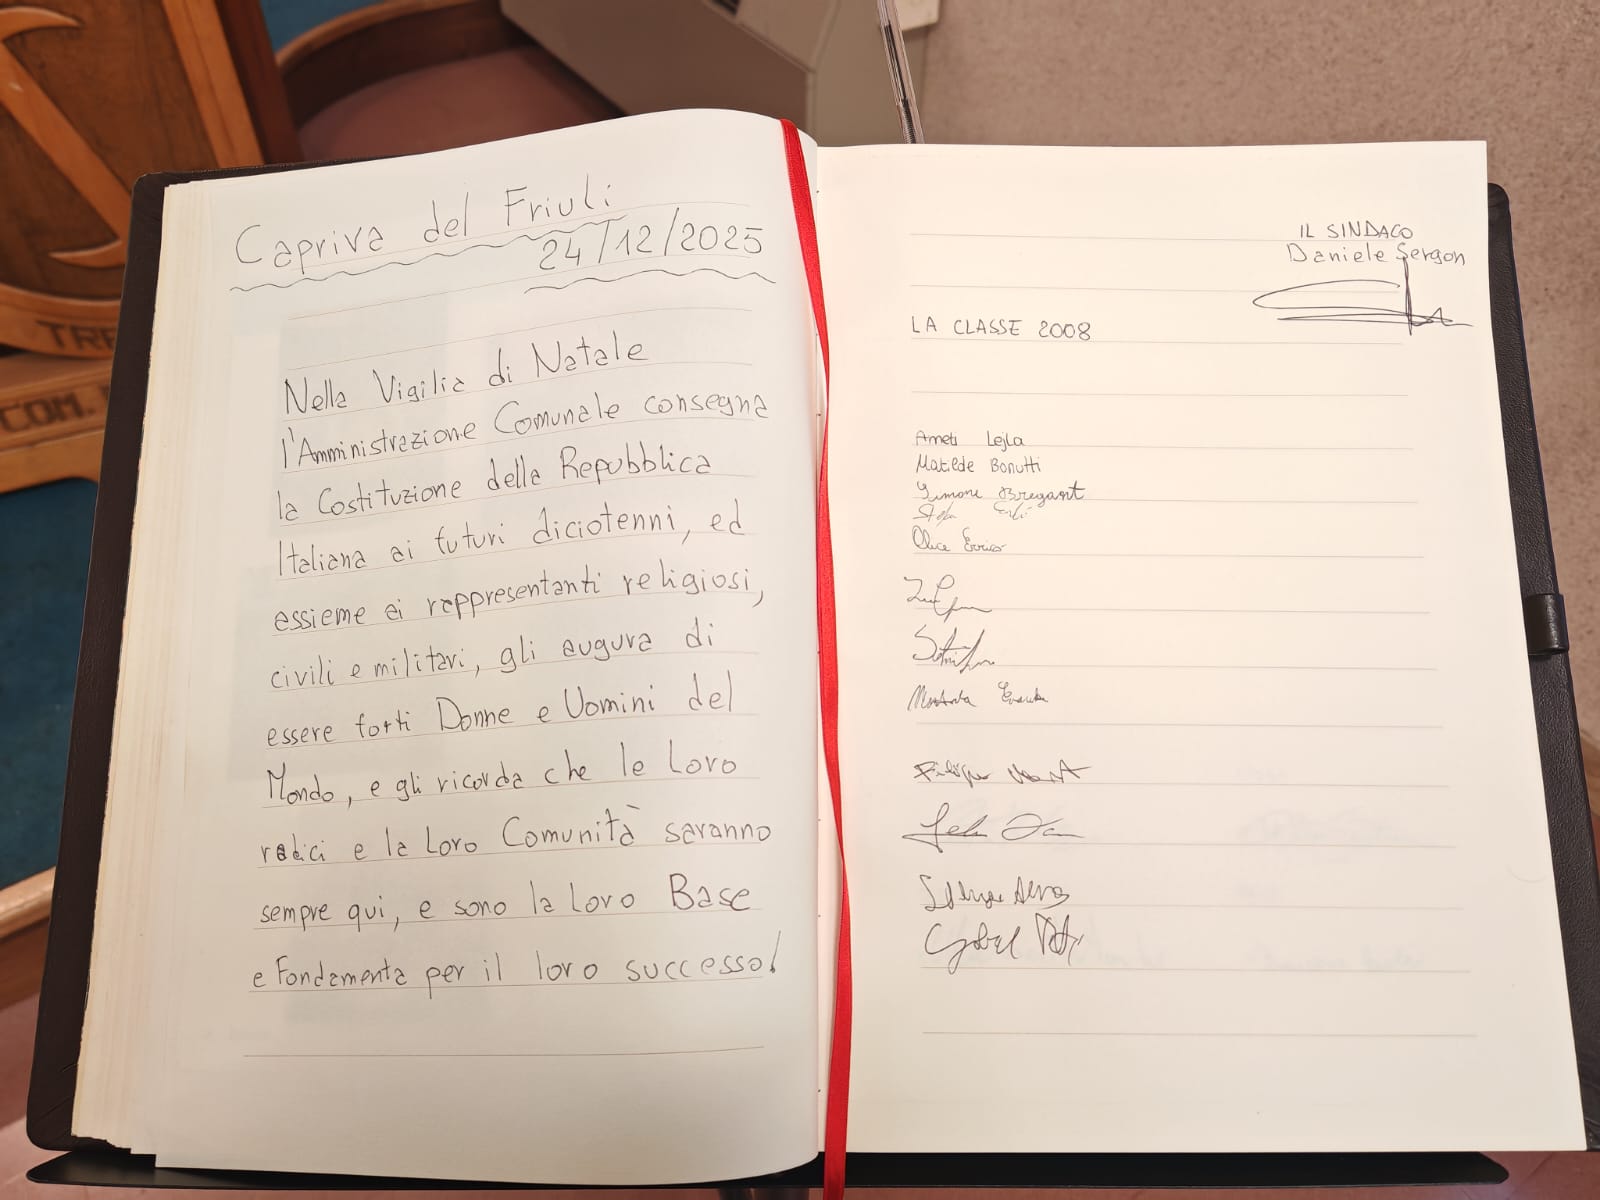 Capriva del Friuli
24/12/2025
Nella Vigilia di Natale
l'Amministrazione Comunale consegna
la Costituzione della Repubblica
Italiana ai futuri diciotenni, ed
essieme ai rappresentanti religiosi,
civili e militari, gli augura di
essere forti Donne e Uomini del
Mondo, e gli ricorda che le loro
radici e la loro Comunità saranno
sempre qui, e sono la loro Base
e Fondamenta per il loro successo!
IL SINDACO
Daniele Sergon
LA CLASSE 2008
Ameti Lejla
Matilde Bonutti
Simone Bregant
TRE
COM.